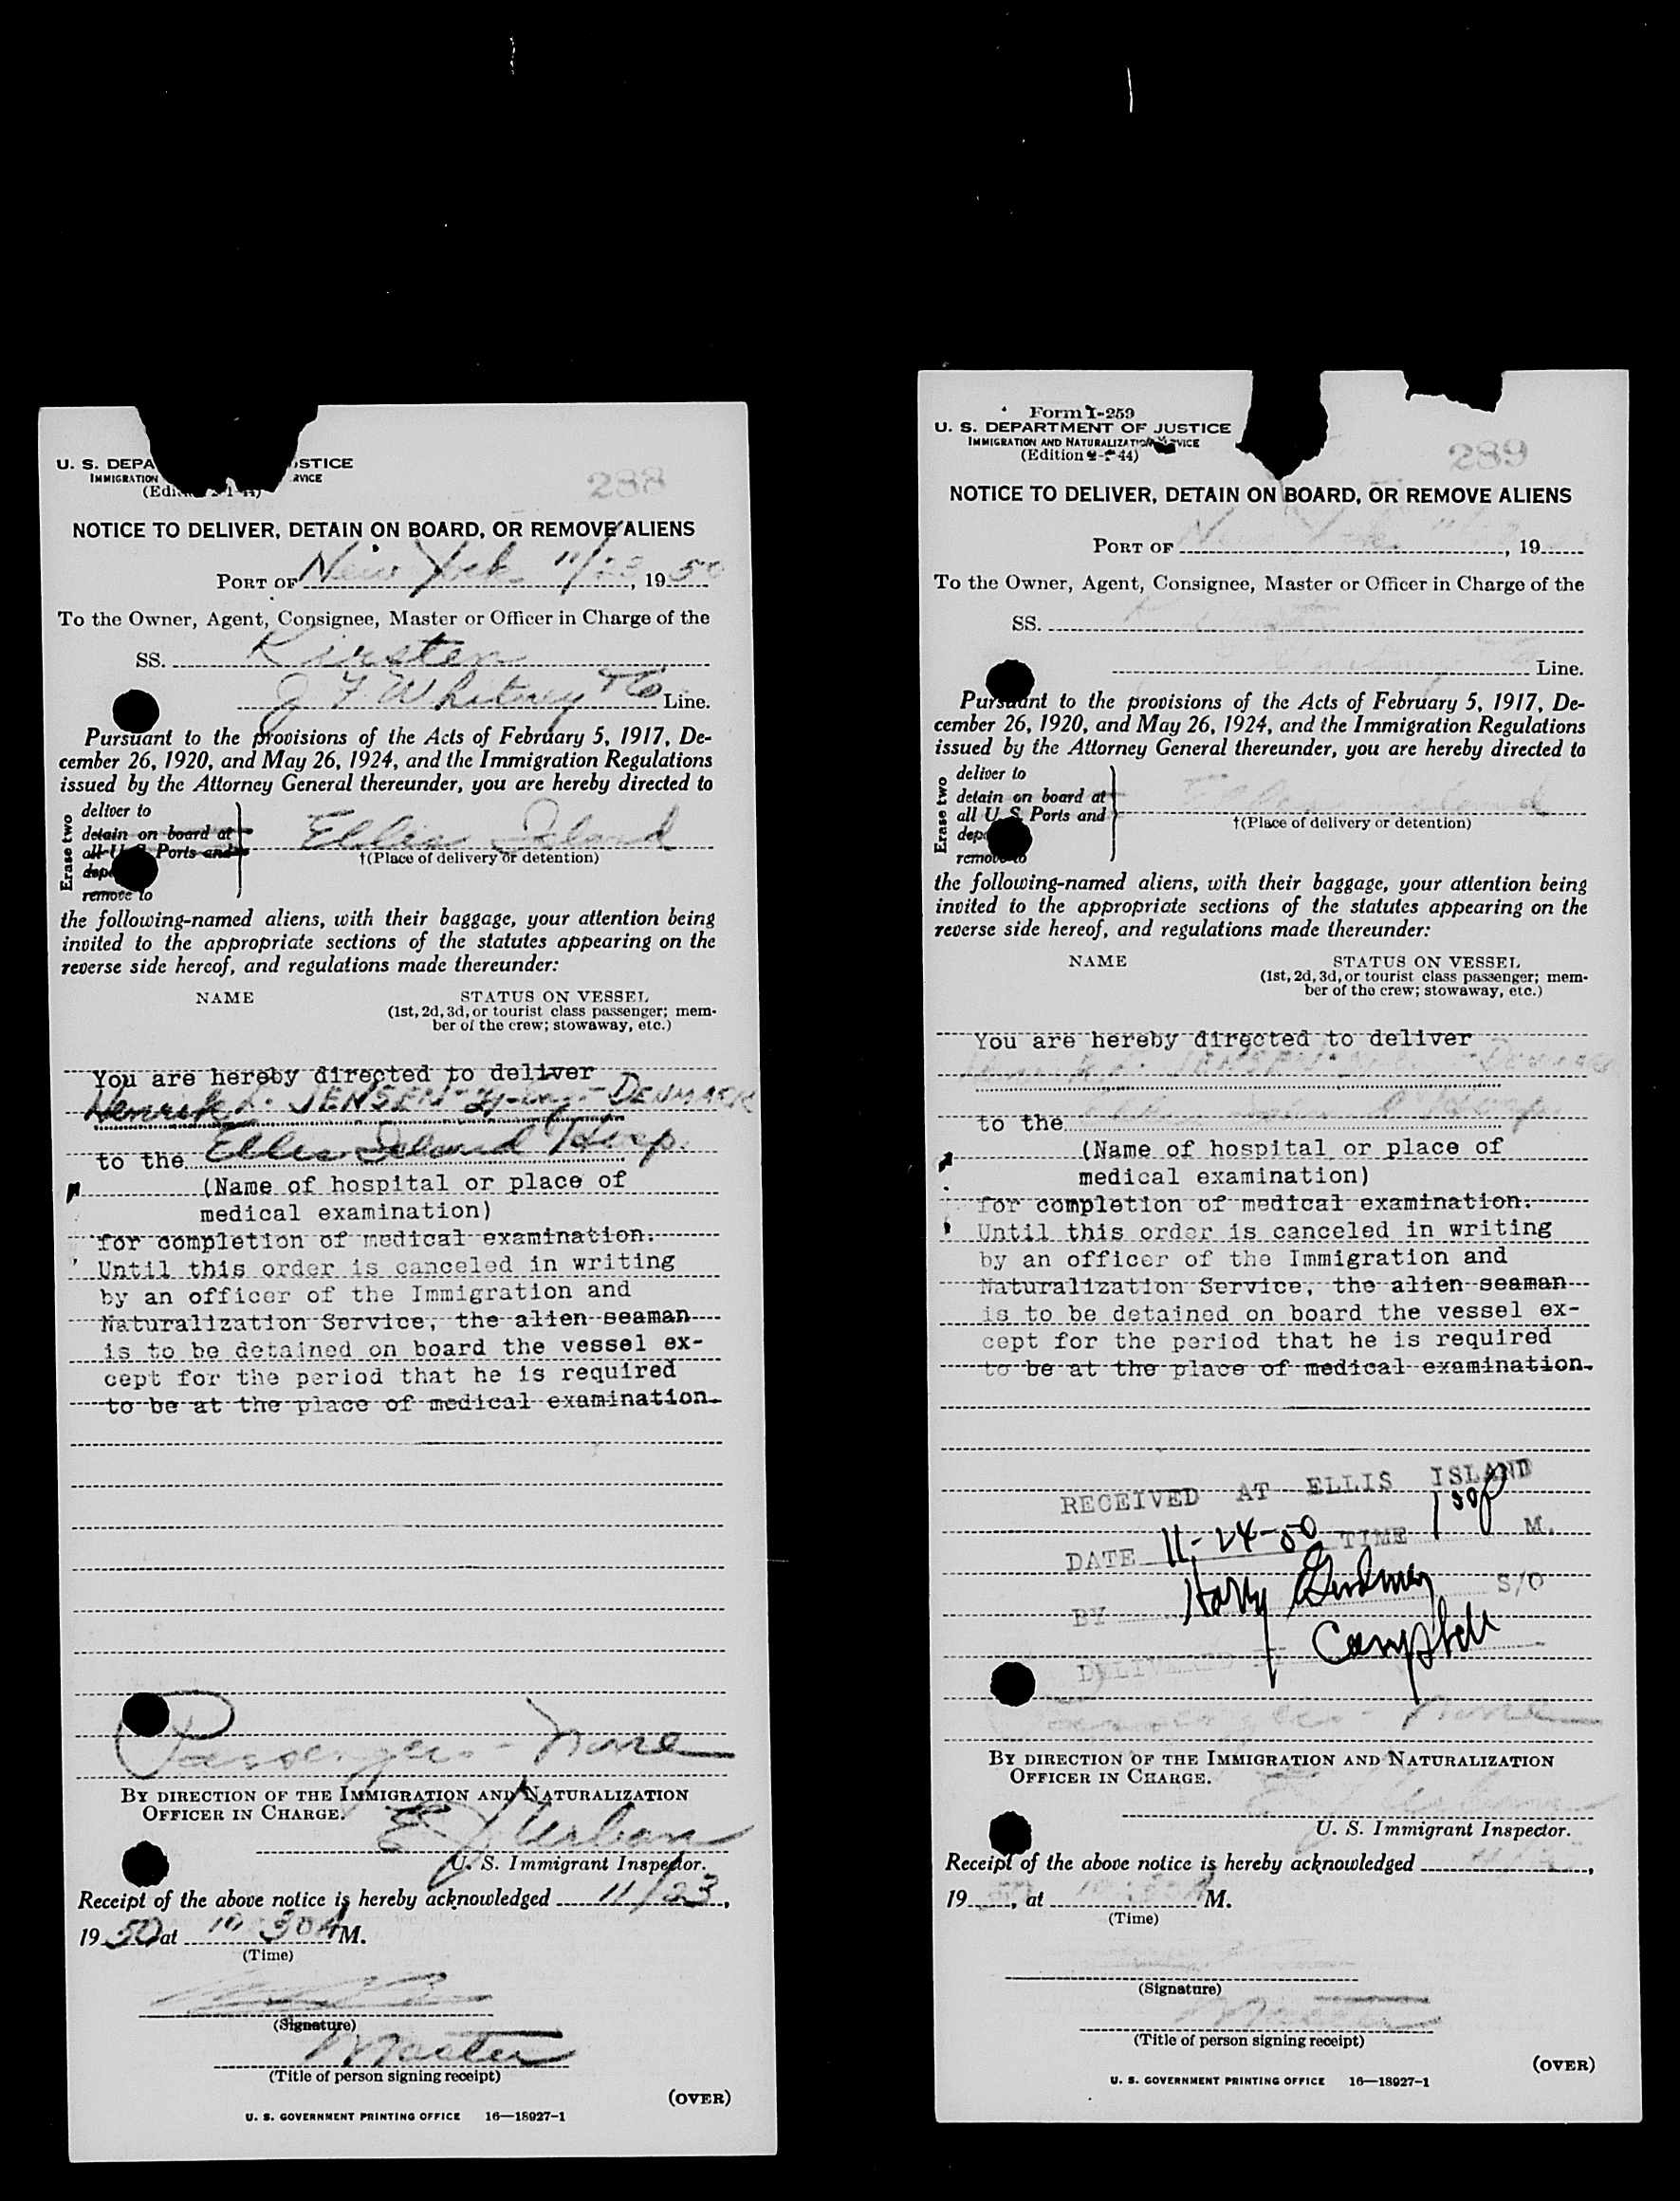 U. S. DEPA STICE
IMMIGRATION RVICE
288
NOTICE TO DELIVER, DETAIN ON BOARD, OR REMOVE ALIENS
PORT OF New York 11/23, 19 50
To the Owner, Agent, Consignee, Master or Officer in Charge of the
SS. Kirsten
J F Whitney & Co Line.
Pursuant to the provisions of the Acts of February 5, 1917, De-
cember 26, 1920, and May 26, 1924, and the Immigration Regulations
issued by the Attorney General thereunder, you are hereby directed to
Erase two
deliver to
detain on board at
all U. S. Ports and
remove to
Ellis Island
†(Place of delivery or detention)
the following-named aliens, with their baggage, your attention being
invited to the appropriate sections of the statutes appearing on the
reverse side hereof, and regulations made thereunder:
NAME STATUS ON VESSEL
(1st, 2d, 3d, or tourist class passenger; mem-
ber of the crew; stowaway, etc.)
You are hereby directed to deliver
Henrik L. JENSEN - DENMARK
to the Ellis Island Hosp.
(Name of hospital or place of
medical examination)
for completion of medical examination.
Until this order is canceled in writing
by an officer of the Immigration and
Naturalization Service, the alien seaman
is to be detained on board the vessel ex-
cept for the period that he is required
to be at the place of medical examination.
Passengers - None
BY DIRECTION OF THE IMMIGRATION AND NATURALIZATION
OFFICER IN CHARGE.
E J Urban
U. S. Immigrant Inspector.
Receipt of the above notice is hereby acknowledged 11/23,
19 50 at 10:30 A M.
(Time)
(Signature)
Master
(Title of person signing receipt)
(OVER)
U. S. GOVERNMENT PRINTING OFFICE 16—18927-1
Form I-259
U. S. DEPARTMENT OF JUSTICE
IMMIGRATION AND NATURALIZATION SERVICE
(Edition 44)
289
NOTICE TO DELIVER, DETAIN ON BOARD, OR REMOVE ALIENS
PORT OF New York, 19
To the Owner, Agent, Consignee, Master or Officer in Charge of the
SS.
Line.
Pursuant to the provisions of the Acts of February 5, 1917, De-
cember 26, 1920, and May 26, 1924, and the Immigration Regulations
issued by the Attorney General thereunder, you are hereby directed to
Erase two
deliver to
detain on board at
all U. S. Ports and
remove to
Ellis Island
†(Place of delivery or detention)
the following-named aliens, with their baggage, your attention being
invited to the appropriate sections of the statutes appearing on the
reverse side hereof, and regulations made thereunder:
NAME STATUS ON VESSEL
(1st, 2d, 3d, or tourist class passenger; mem-
ber of the crew; stowaway, etc.)
You are hereby directed to deliver
Henrik L. JENSEN - DENMARK
to the Ellis Island Hosp.
(Name of hospital or place of
medical examination)
for completion of medical examination.
Until this order is canceled in writing
by an officer of the Immigration and
Naturalization Service, the alien seaman
is to be detained on board the vessel ex-
cept for the period that he is required
to be at the place of medical examination.
RECEIVED AT ELLIS ISLAND
DATE 11-24-50 TIME 150 P M.
BY Harry S/O
DELIVERED BY Campbell
Passengers - None
BY DIRECTION OF THE IMMIGRATION AND NATURALIZATION
OFFICER IN CHARGE.
E J Urban
U. S. Immigrant Inspector.
Receipt of the above notice is hereby acknowledged,
19 50, at 10:30 A M.
(Time)
(Signature)
Master
(Title of person signing receipt)
(OVER)
U. S. GOVERNMENT PRINTING OFFICE 16—18927-1